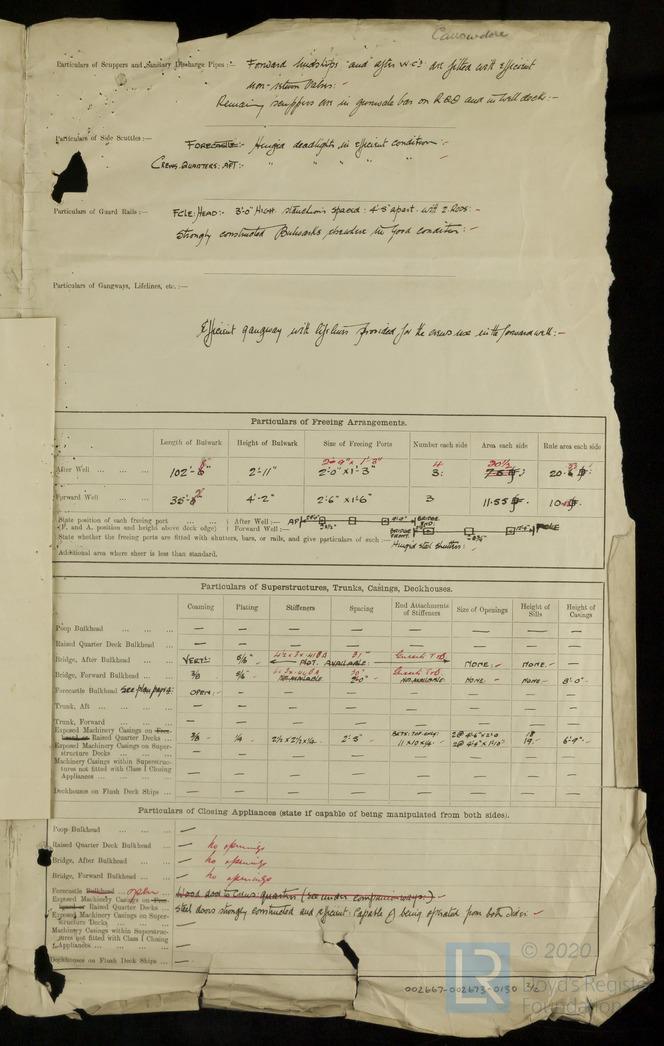 Particulars of Scuppers and Sanitary Discharge Pipes :— Forward and after W.C's are fitted with efficient
non-return valves :-
Remaining scuppers are in gunwale bar on R.Q.D and in well deck :-
Particulars of Side Scuttles :— FORECASTLE:- Hinged deadlights in efficient condition :-
CREWS. QUARTERS: AFT:- " " " "
Particulars of Guard Rails :— FCLE: HEAD:- 3'-0" HIGH. stanchions spaced: 4'-3" apart. with 2 RODS :-
Strongly constructed Bulwarks elsewhere in good condition :-
Particulars of Gangways, Lifelines, etc. :—
Efficient gangway with lifelines provided for the crews use in the forward well :-
Particulars of Freeing Arrangements.
Length of Bulwark Height of Bulwark Size of Freeing Ports Number each side Area each side Rule area each side
2'-9" x 1'-3" 4 30½
After Well ... ... ... 102'- 2'-11" 2'-0" x 1'-3" 3: 7.5 20.
Forward Well ... ... 35'- 4'-2" 2'-6" x 1'-6" 3 11.55 10.
State position of each freeing port ... ... After Well :— AP BRIDGE END
(F. and A. position and height above deck edge) Forward Well :— BRIDGE FRONT FCLE
State whether the freeing ports are fitted with shutters, bars, or rails, and give particulars of such :— Hinged steel shutters :-
Additional area where sheer is less than standard.
Particulars of Superstructures, Trunks, Casings, Deckhouses.
Coaming Plating Stiffeners Spacing End Attachments of Stiffeners Size of Openings Height of Sills Height of Casings
Poop Bulkhead ... ... ... — — — — — — — —
Raised Quarter Deck Bulkhead ... — — — — — — — —
Bridge, After Bulkhead ... ... VERT:- 5/16" - NOT. AVAILABLE: NONE :- NONE. - —
Bridge, Forward Bulkhead ... ... 3/8 5/16" - NOT AVAILABLE 30" NOT AVAILABLE NONE - NONE - 8'-0" -
Forecastle Bulkhead See plan page 4: OPEN :-
Trunk, Aft ... ... ... — — — — — — — —
Trunk, Forward ... ... ... — — — — — — — —
Exposed Machinery Casings on Raised Quarter Decks ... 3/8 - ¼ - 2½ x 2½ x ¼ - 2'-5" - 11 x 10 x ¼ - 18 19. 6'-9" -
Exposed Machinery Casings on Superstructure Decks ... ... — — — — — — — —
Machinery Casings within Superstructures not fitted with Class I Closing Appliances ... ... — — — — — — — —
Deckhouses on Flush Deck Ships ... — — — — — — — —
Particulars of Closing Appliances (state if capable of being manipulated from both sides).
Poop Bulkhead ... ... ... —
Raised Quarter Deck Bulkhead ... — no openings
Bridge, After Bulkhead ... ... — no openings
Bridge, Forward Bulkhead ... ... — no openings
Forecastle Bulkhead open Wood door to Crews quarters (see under companionways :-) -
Exposed Machinery Casings on Raised Quarter Decks ... Steel doors strongly constructed and efficient: Capable of being operated from both sides :-
Exposed Machinery Casings on Superstructure Decks ... ... —
Machinery Casings within Superstructures not fitted with Class I Closing Appliances ... ... —
Deckhouses on Flush Deck Ships ... —
LR © 2020
Lloyd's Register
Foundation
002667-002673-0130 3/2